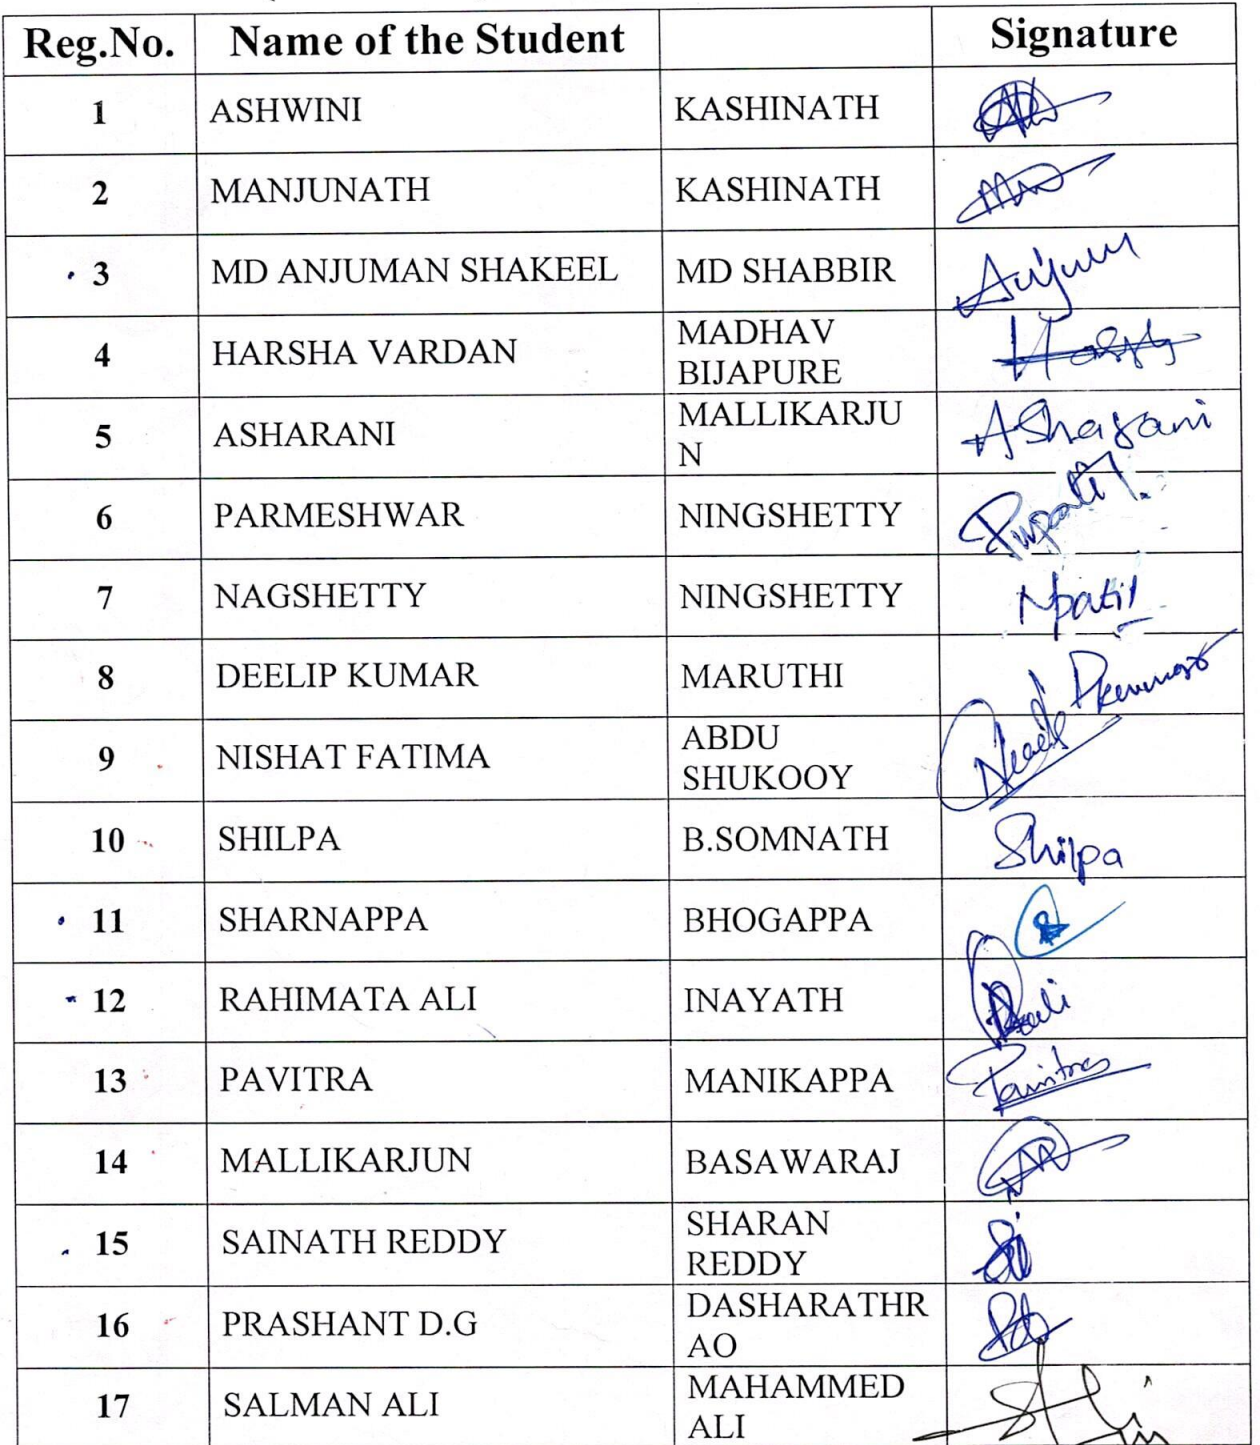 Reg.No. Name of the Student Signature
1 ASHWINI KASHINATH
2 MANJUNATH KASHINATH
3 MD ANJUMAN SHAKEEL MD SHABBIR Anjum
4 HARSHA VARDAN MADHAV
BIJAPURE
5 ASHARANI MALLIKARJU
N
Asharani
6 PARMESHWAR NINGSHETTY
7 NAGSHETTY NINGSHETTY Npatil
8 DEELIP KUMAR MARUTHI
9 NISHAT FATIMA ABDU
SHUKOOY
10 SHILPA B.SOMNATH Shilpa
11 SHARNAPPA BHOGAPPA
12 RAHIMATA ALI INAYATH
13 PAVITRA MANIKAPPA Pavitra
14 MALLIKARJUN BASAWARAJ
15 SAINATH REDDY SHARAN
REDDY
16 PRASHANT D.G DASHARATHR
AO
17 SALMAN ALI MAHAMMED
ALI